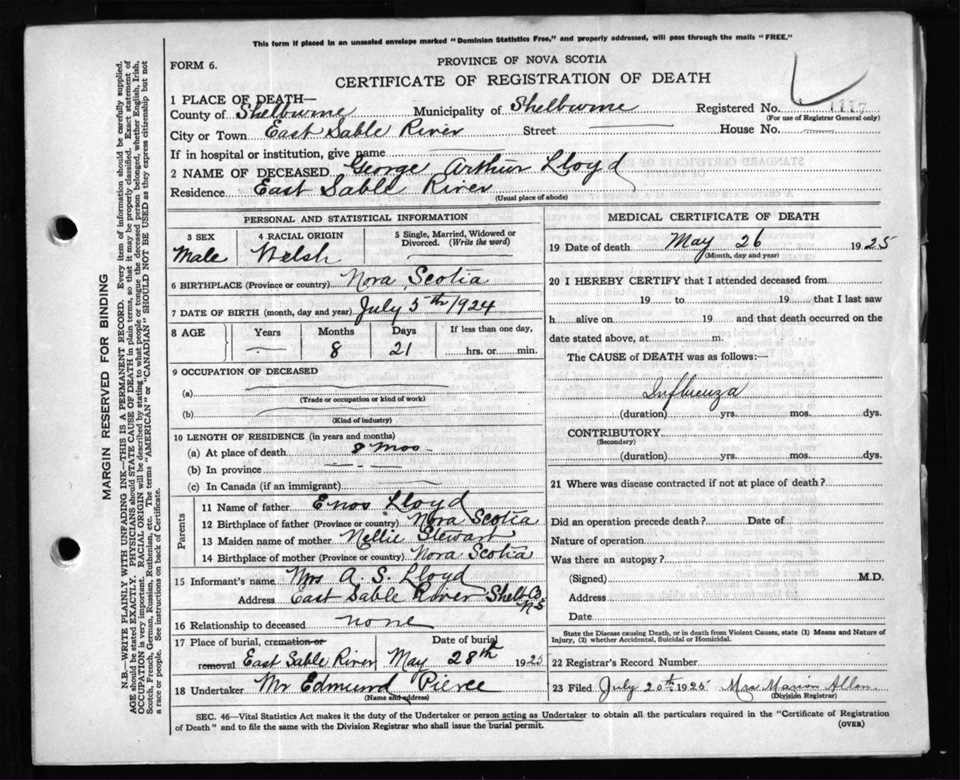 This form if placed in an unsealed envelope marked "Dominion Statistics Free," and properly addressed, will pass through the mails "FREE."
FORM 6.
PROVINCE OF NOVA SCOTIA
CERTIFICATE OF REGISTRATION OF DEATH
1 PLACE OF DEATH—
County of Shelburne Municipality of Shelburne Registered No. 1117
(For use of Registrar General only)
City or Town East Sable River Street House No.
If in hospital or institution, give name
2 NAME OF DECEASED George Arthur Lloyd
Residence East Sable River
(Usual place of abode)
PERSONAL AND STATISTICAL INFORMATION
3 SEX 4 RACIAL ORIGIN 5 Single, Married, Widowed or Divorced. (Write the word)
Male Welsh
6 BIRTHPLACE (Province or country) Nova Scotia
7 DATE OF BIRTH (month, day and year) July 5th 1924
8 AGE Years Months Days If less than one day,
8 21 hrs. or min.
9 OCCUPATION OF DECEASED
(a)
(Trade or occupation or kind of work)
(b)
(Kind of industry)
10 LENGTH OF RESIDENCE (in years and months)
(a) At place of death 8 mos
(b) In province
(c) In Canada (if an immigrant)
Parents
11 Name of father Enos Lloyd
12 Birthplace of father (Province or country) Nova Scotia
13 Maiden name of mother Nellie Stewart
14 Birthplace of mother (Province or country) Nova Scotia
15 Informant's name Mrs A. S. Lloyd
Address East Sable River Shelb Co NS
16 Relationship to deceased none
17 Place of burial, cremation or removal Date of burial
East Sable River May 28th 1925
18 Undertaker Mr Edmund Pierce
(Name and address)
MEDICAL CERTIFICATE OF DEATH
19 Date of death May 26 1925
(Month, day and year)
20 I HEREBY CERTIFY that I attended deceased from
19 to 19 that I last saw
h alive on 19 and that death occurred on the
date stated above, at m.
The CAUSE of DEATH was as follows:—
Influenza
(duration) yrs. mos. dys.
CONTRIBUTORY
(Secondary)
(duration) yrs. mos. dys.
21 Where was disease contracted if not at place of death?
Did an operation precede death? Date of
Nature of operation
Was there an autopsy?
(Signed) M.D.
Address
Date
State the Disease causing Death, or in death from Violent Causes, state (1) Means and Nature of
Injury, (2) whether Accidental, Suicidal or Homicidal.
22 Registrar's Record Number
23 Filed July 20th 1925 Mrs Marion Allen
(Division Registrar)
SEC. 46—Vital Statistics Act makes it the duty of the Undertaker or person acting as Undertaker to obtain all the particulars required in the "Certificate of Registration
of Death" and to file the same with the Division Registrar who shall issue the burial permit.
(OVER)
MARGIN RESERVED FOR BINDING
N.B.—WRITE PLAINLY WITH UNFADING INK—THIS IS A PERMANENT RECORD. Every item of information should be carefully supplied.
AGE should be stated EXACTLY. PHYSICIANS should STATE CAUSE OF DEATH in plain terms, so that it may be properly classified. Exact statement of
OCCUPATION is very important. RACIAL ORIGIN will be described by stating to what people or tongue the deceased person belonged, whether English, Irish,
Scotch, French, German, Russian, Ruthenian, etc. The terms "AMERICAN" or "CANADIAN" SHOULD NOT BE USED as they express citizenship but not
a race or people. See instructions on back of Certificate.